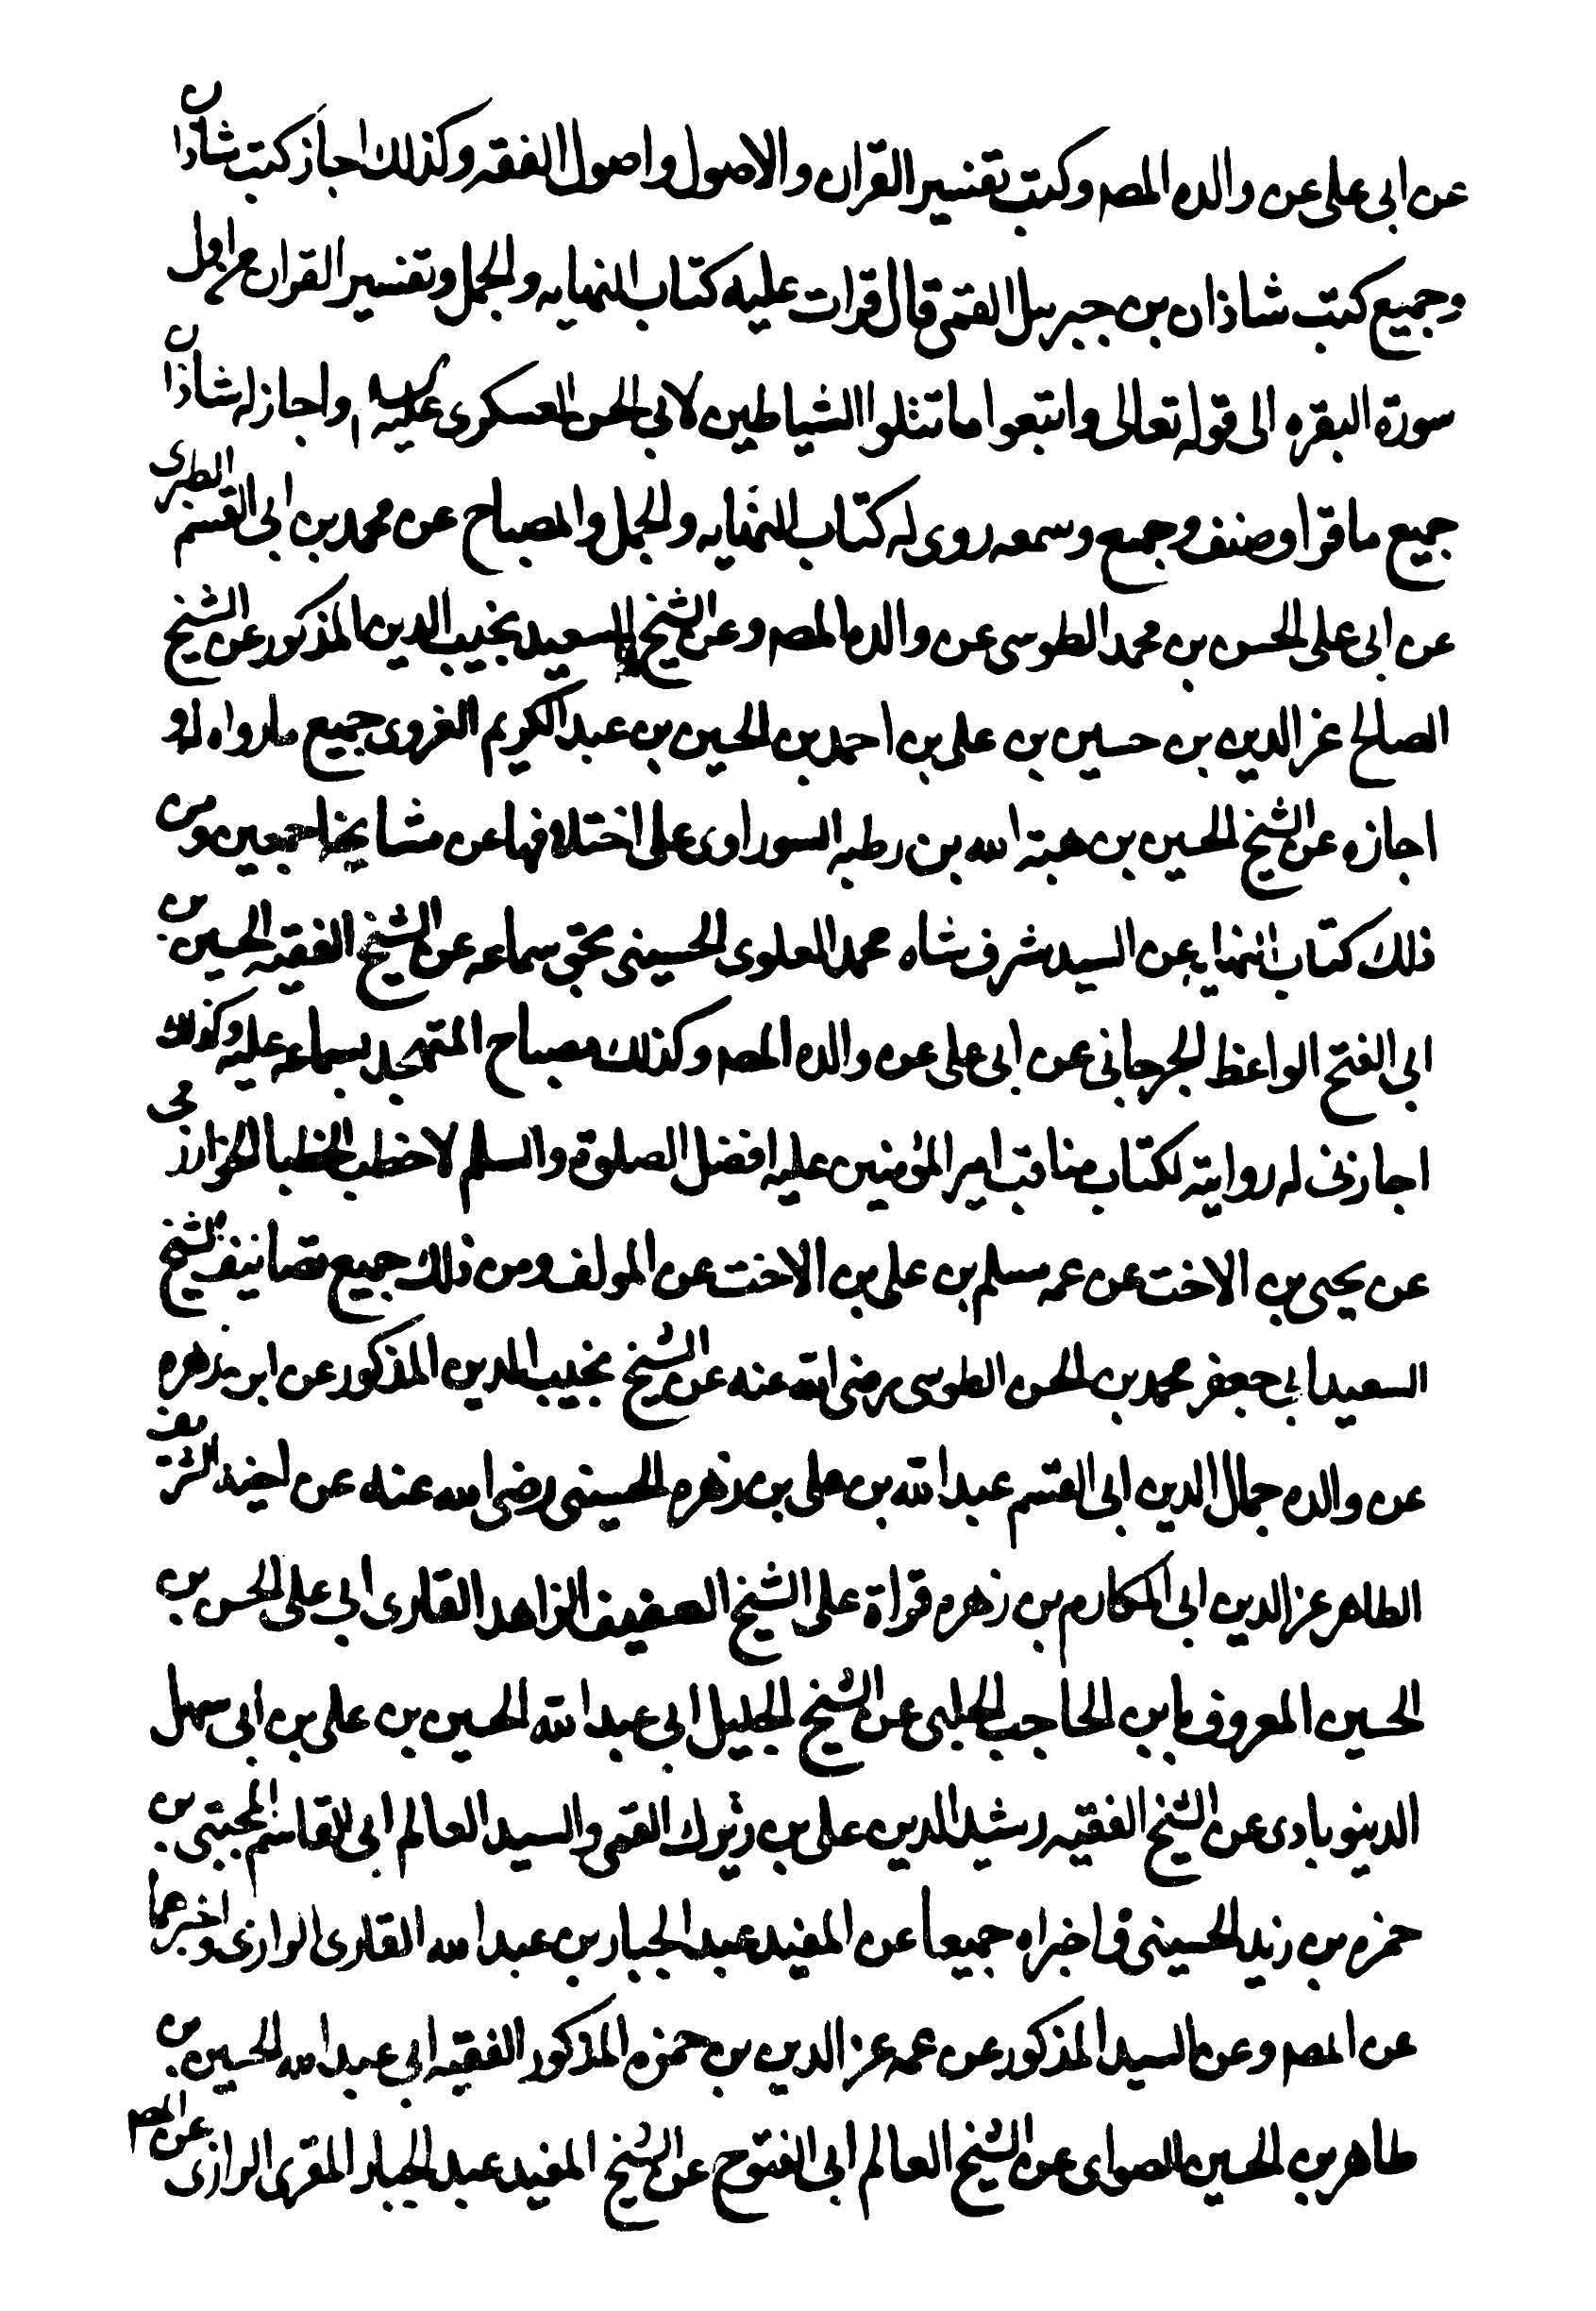 عن ابى على عن والده المصـ وكتب تفسير القران والاصول واصول الفقه وكذلك اجاز كتب شاذان
وجميع كتب شاذان بن جبريل القمى قال قرات عليه كتاب النهايه والجمل وتفسير القران من اول
سورة البقره الى قوله تعالى واتبعوا ما تتلوا الشياطين لابى الحسن العسكرى عليه واجاز له شاذان
جميع ما قرا وصنف وجمع وسمعه روى له كتاب النهايه والجمل والمصباح عن محمد بن ابى القسم الطبرى
عن ابى على الحسن بن محمد الطوسى عن والده المصـ وعن الشيخ السعيد نجيب الدين المذكور عن الشيخ
الصالح عز الدين بن حسين بن على بن احمد بن الحسين بن عبد الكريم الغروى جميع ما رواه له او
اجازه عن الشيخ الحسين بن هبة الله بن رطبه السوراوى على اختلافها عن مشايخنا اجمعين ومن
ذلك كتاب النهايه عن السيد شرف شاه محمد العلوى الحسينى بحق سماعه عن الشيخ الفقيه الحسين بن
ابى الفتح الواعظ الجرجانى عن ابى على عن والده المصـ وكذلك مصباح المتهجد بسماعه عليه وكذلك
اجازنى له روايته لكتاب مناقب امير المؤمنين عليه افضل الصلوة والسلم لاخطب الخطبا الخوارزمى
عن يحيى بن الاخت عن عمه مسلم بن على بن الاخت عن المولف ومن ذلك جميع تصانيف الشيخ
السعيد ابى جعفر محمد بن الحسن الطوسى رضى الله عنه عن الشيخ نجيب الدين المذكور عن ابن زهره
عن والده جمال الدين ابى القسم عبد الله بن على بن زهره الحسينى رضى الله عنه عن اخيه الشريف
الطاهر عز الدين ابى المكارم بن زهره قراة على الشيخ العفيف الزاهد القارى ابى على الحسن بن
الحسين المعروف بابن الحاجب الحلبى عن الشيخ الجليل ابى عبد الله الحسين بن على بن ابى سهل
الدينوبادى عن الشيخ الفقيه رشيد الدين على بن زيرك القمى والسيد العالم ابى القاسم المجتبى بن
حمزه بن زيد الحسينى فاخبراه جميعا عن المفيد عبد الجبار بن عبد الله القارى الرازى واخبرهما
عن المصـ وعن السيد المذكور عن عمه عز الدين بن حمزه المذكور الفقيه ابى عبد الله الحسين بن
طاهر بن الحسين الصواى عن الشيخ العالم ابى الفتوح عن الشيخ المفيد عبد الجبار المقرى الرازى عن المصـ